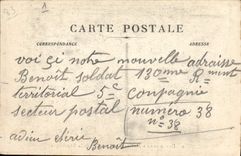 CARTE POSTALE
CORRESPONDANCE ADRESSE
voi çi notre nouvelle adraisse
Benoit soldat 130eme Rment
territorial 5e Compagnie
secteur postal numero 38
n° 38
adieu
Benoit